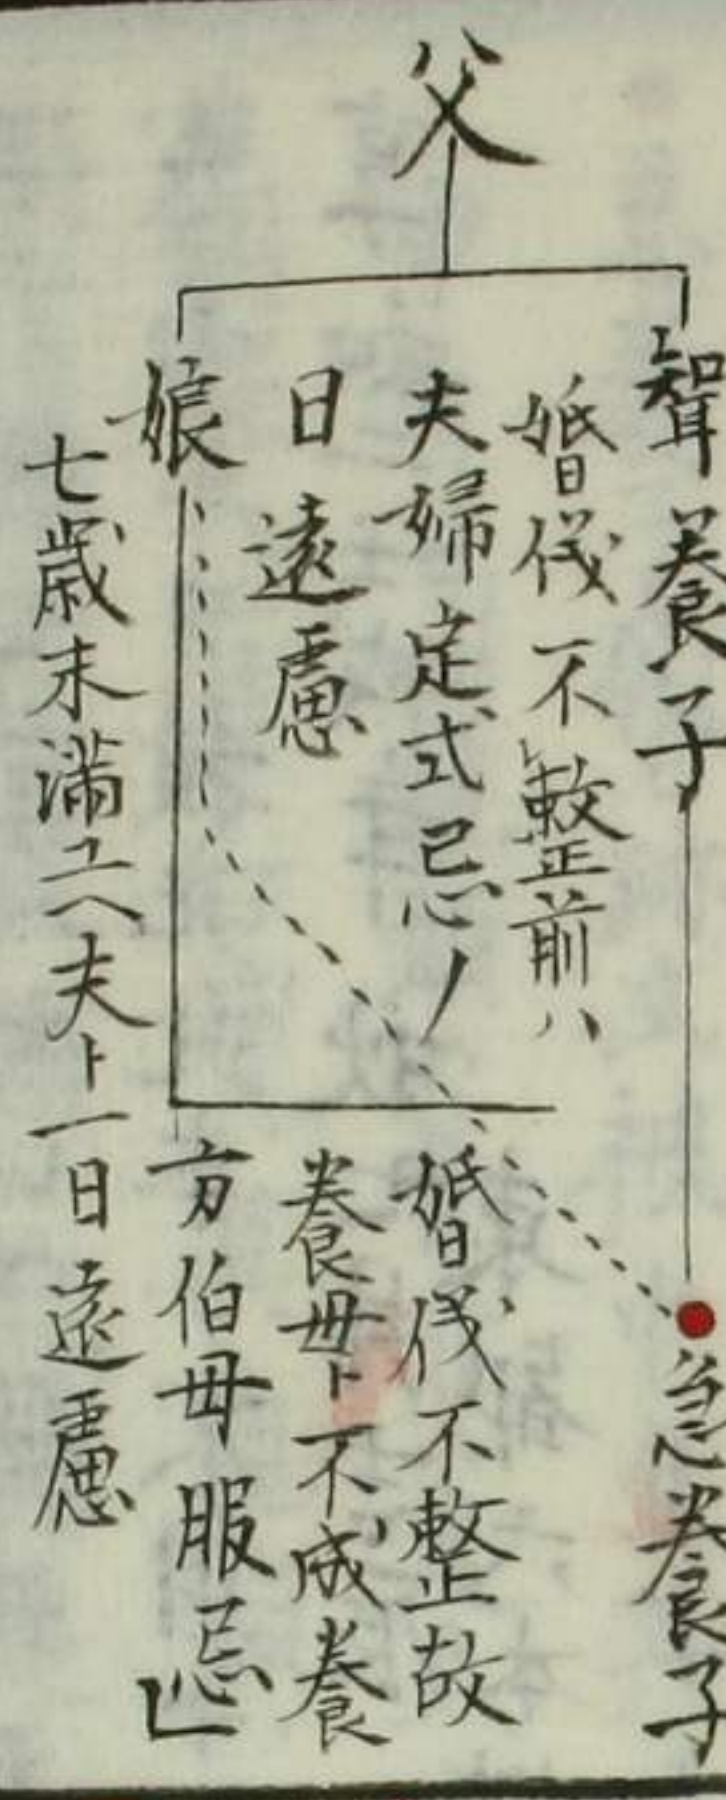 父
聟養子
婚儀不整前ハ
夫婦定式忌ノ
日遠慮
娘
七歳未満ユヘ夫ト一日遠慮
急養子
婚儀不整故
養母ト不成養
方伯母服忌